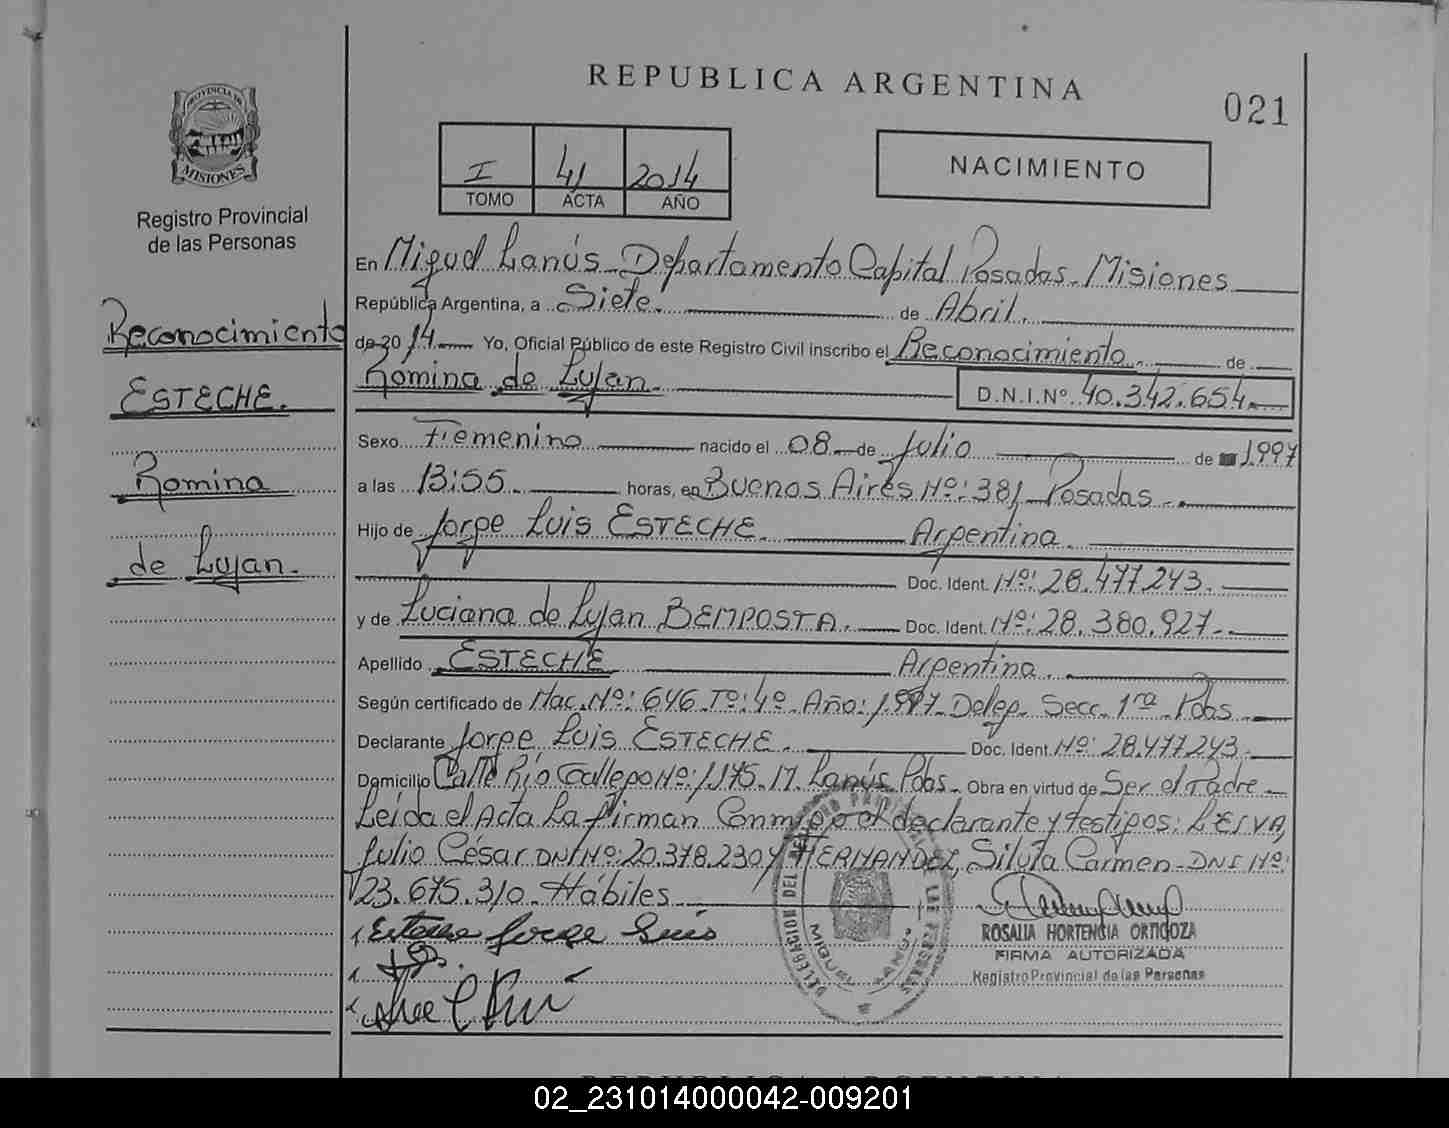 REPUBLICA ARGENTINA
021
PROVINCIA DE
MISIONES
Registro Provincial
de las Personas
I 41 2014
TOMO ACTA AÑO
NACIMIENTO
Reconocimiento
ESTECHE.
Romina
de Lujan.
En Miguel Lanús Departamento Capital Posadas Misiones
República Argentina, a Siete de Abril.
de 20 14 Yo, Oficial Público de este Registro Civil inscribo el Reconocimiento de
Romina de Lujan D.N.I.Nº 40.342.654
Sexo Femenino nacido el 08 de Julio de 1997
a las 13:55 horas, en Buenos Aires Nº: 381 Posadas
Hijo de Jorge Luis ESTECHE. Argentina.
Doc. Ident. Nº: 28.477.243.
y de Luciana de Lujan BEMPOSTA. Doc. Ident. Nº: 28.380.927
Apellido ESTECHE Argentina.
Según certificado de Nac. Nº: 646 Tº: 4º Año: 1.997 Deleg. Secc. 1ra Pdas
Declarante Jorge Luis ESTECHE. Doc. Ident. Nº: 28.477.243.
Domicilio Calle Río Nº: 1175 M. Lanús Pdas. Obra en virtud de Ser el Padre
Leída el Acta La firman Conmigo el declarante y testigos: LEIVA,
Julio César DNI Nº: 20.378.230 y HERNANDEZ, Silvia Carmen DNI Nº:
23.675.310 Hábiles
Esteche Jorge Luis
ROSALIA HORTENCIA ORTIGOZA
FIRMA AUTORIZADA
Registro Provincial de las Personas
DELEGACION DEL REGISTRO PROVINCIAL DE LAS PERSONAS
MIGUEL LANUS
REPUBLICA ARGENTINA
02_231014000042-009201